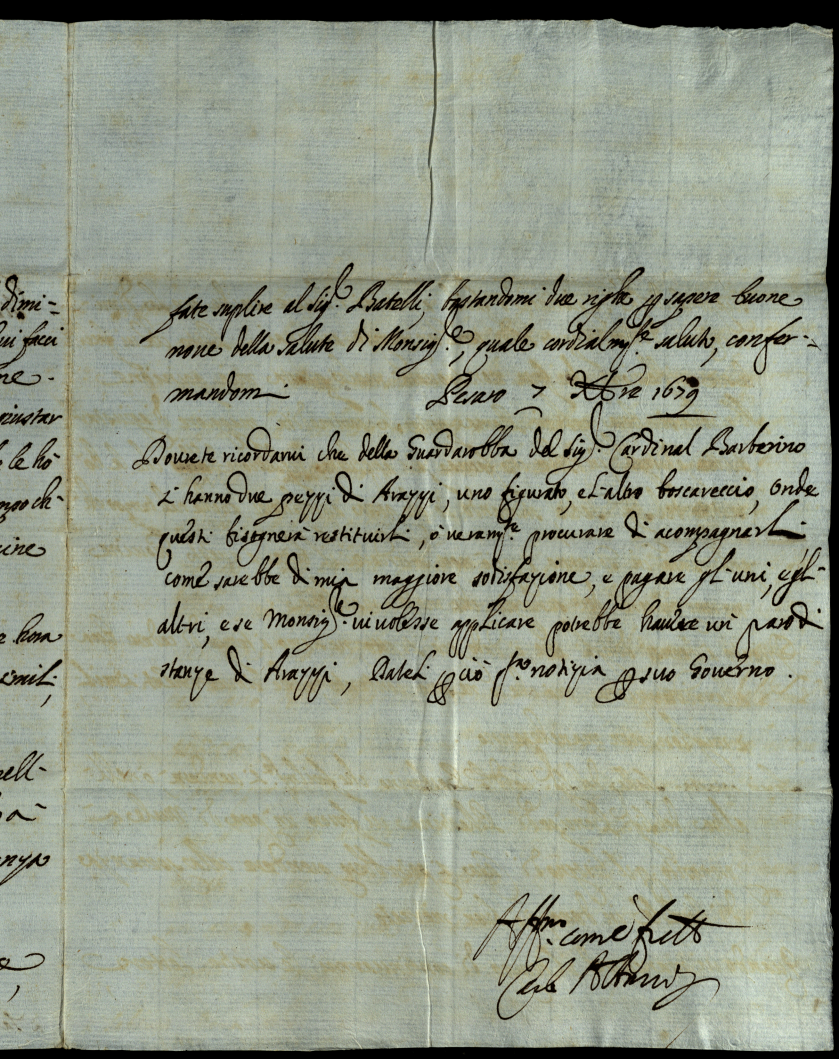 dimi=
ui facci
ne.
giustar
le hò
ngo ch-
cine
hora
simili;
ell-
à
anza
fate suplire al Sig.re Batelli, bastandomi due righe p sapere buone
nove della salute di Monsig.re, quale cordialm.te saluto, confer=
mandomi Pesaro 7 Xbre 1679
Dovrete ricordarvi che della Guardarobba del Sig.r Cardinal Barberino
si hanno due pezzi di Arazzi, uno figurato, e l'altro boscareccio, onde
questi bisognerà restituirli, ò veram.te procurare di acompagnarli
come sarebbe di mia maggiore sodisfazione, e pagare gl'uni, e gl'
altri, e se Monsig.re vi volesse applicare potrebbe havere un paro di
stanze di Arazzi, Dateli p ciò notizia p suo Governo.
Aff.mo come fratello
Carlo Albani